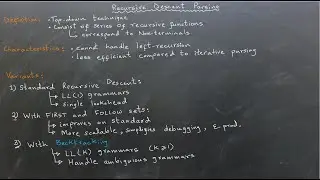 Recursive Descent Parsing
Definition: • Top-down technique
• Consist of series of recursive functions
↳ correspond to Nonterminals
Characteristics: • Cannot handle left-recursion
• Less efficient compared to iterative parsing
Variants:
1) Standard Recursive Descent:
↳ LL(1) grammars
↳ Single lookahead
2) With FIRST and FOLLOW sets:
↳ improves on standard
↳ More scalable, simplifies debugging, ε-prod.
3) With Backtracking
↳ LL(K) grammars (K≥1)
↳ Handle ambiguous grammars